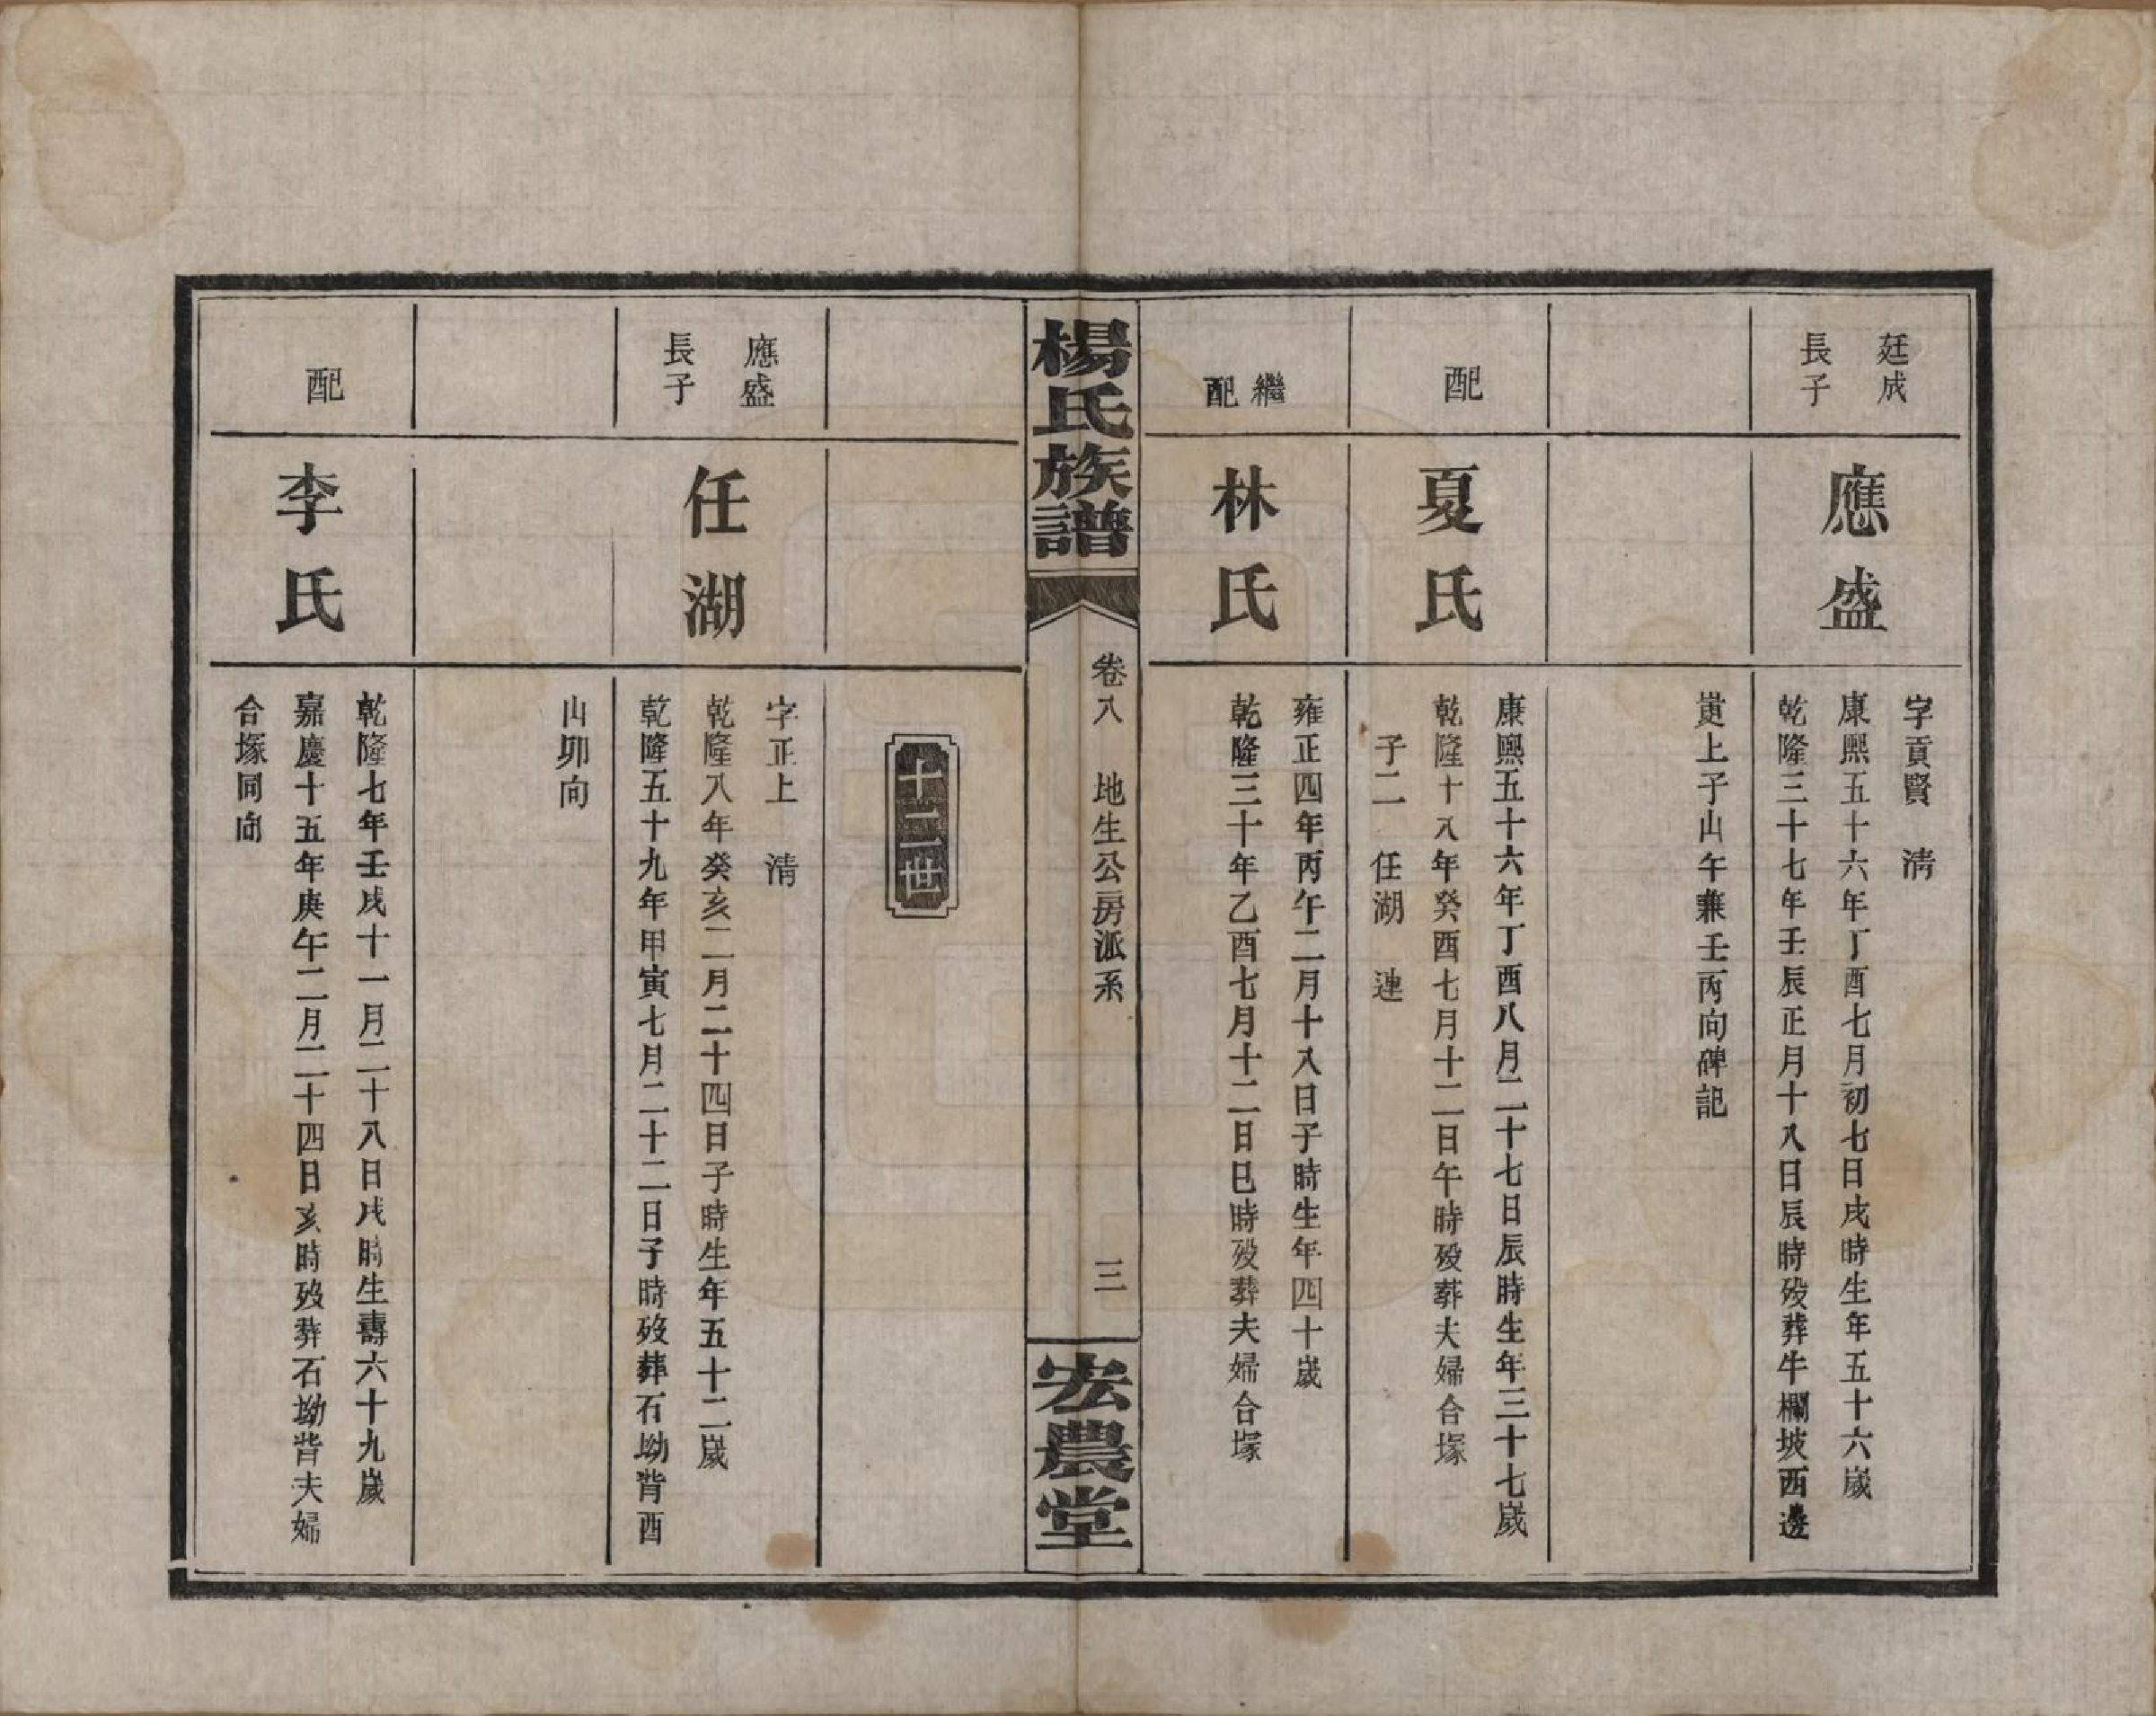 廷成
長子
應盛
字貢賢　清
康熙五十六年丁酉七月初七日戌時生年五十六歲
乾隆三十七年壬辰正月十八日辰時歿葬牛欄坡西邊
嵬上子山午兼壬丙向碑記
配
夏氏
康熙五十六年丁酉八月二十七日辰時生年三十七歲
乾隆十八年癸酉七月十二日午時歿葬夫婦合塚
子二　任湖　連
繼
配
林氏
雍正四年丙午二月十八日子時生年四十歲
乾隆三十年乙酉七月十二日巳時歿葬夫婦合塚
楊氏族譜
卷八　地生公房派系
三
宏農堂
十二世
應盛
長子
任湖
字正上　清
乾隆八年癸亥二月二十四日子時生年五十二歲
乾隆五十九年甲寅七月二十二日子時歿葬石坳背酉
山卯向
配
李氏
乾隆七年壬戌十一月二十八日戌時生壽六十九歲
嘉慶十五年庚午二月二十四日亥時歿葬石坳背夫婦
合塚同向